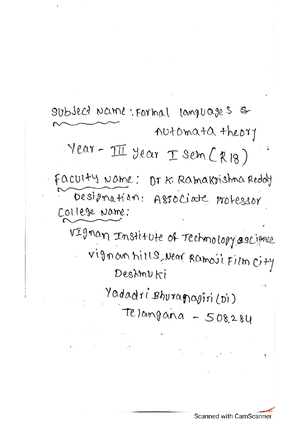 Subject Name: Formal languages &
Automata theory
Year - III Year I Sem (R18)
Faculty Name: Dr K. Ramakrishna Reddy
Designation: Associate Professor
College Name:
Vignan Institute of Technology & science
vignan hills, Near Ramoji Film City
Deshmuki
Yadadri Bhuvanagiri (Di)
Telangana - 508284
Scanned with CamScanner